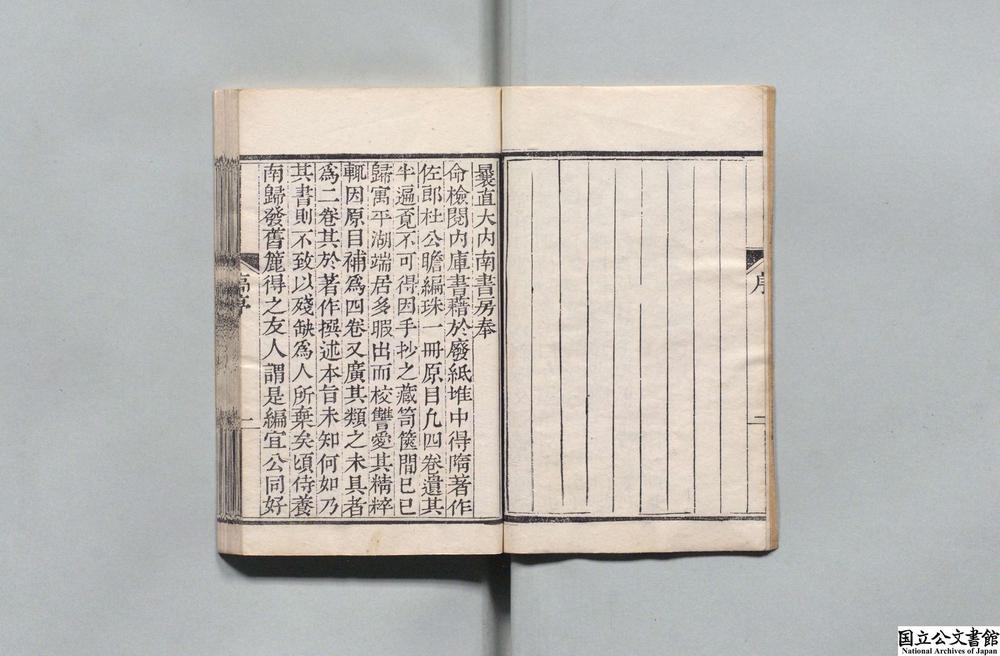 序
一
曩直大内南書房奉
命檢閱内庫書籍於廢紙堆中得隋著作
佐郎杜公瞻編珠一冊原目凡四卷遺其
半遍覓不可得因手抄之藏笥篋間已巳
歸寓平湖端居多暇出而校讐愛其精粹
輒因原目補爲四卷又廣其類之未具者
爲二卷其於著作撰述本旨未知何如乃
其書則不致以殘缺爲人所棄矣頃侍養
南歸發舊簏得之友人謂是編宜公同好
編序
一
国立公文書館
National Archives of Japan